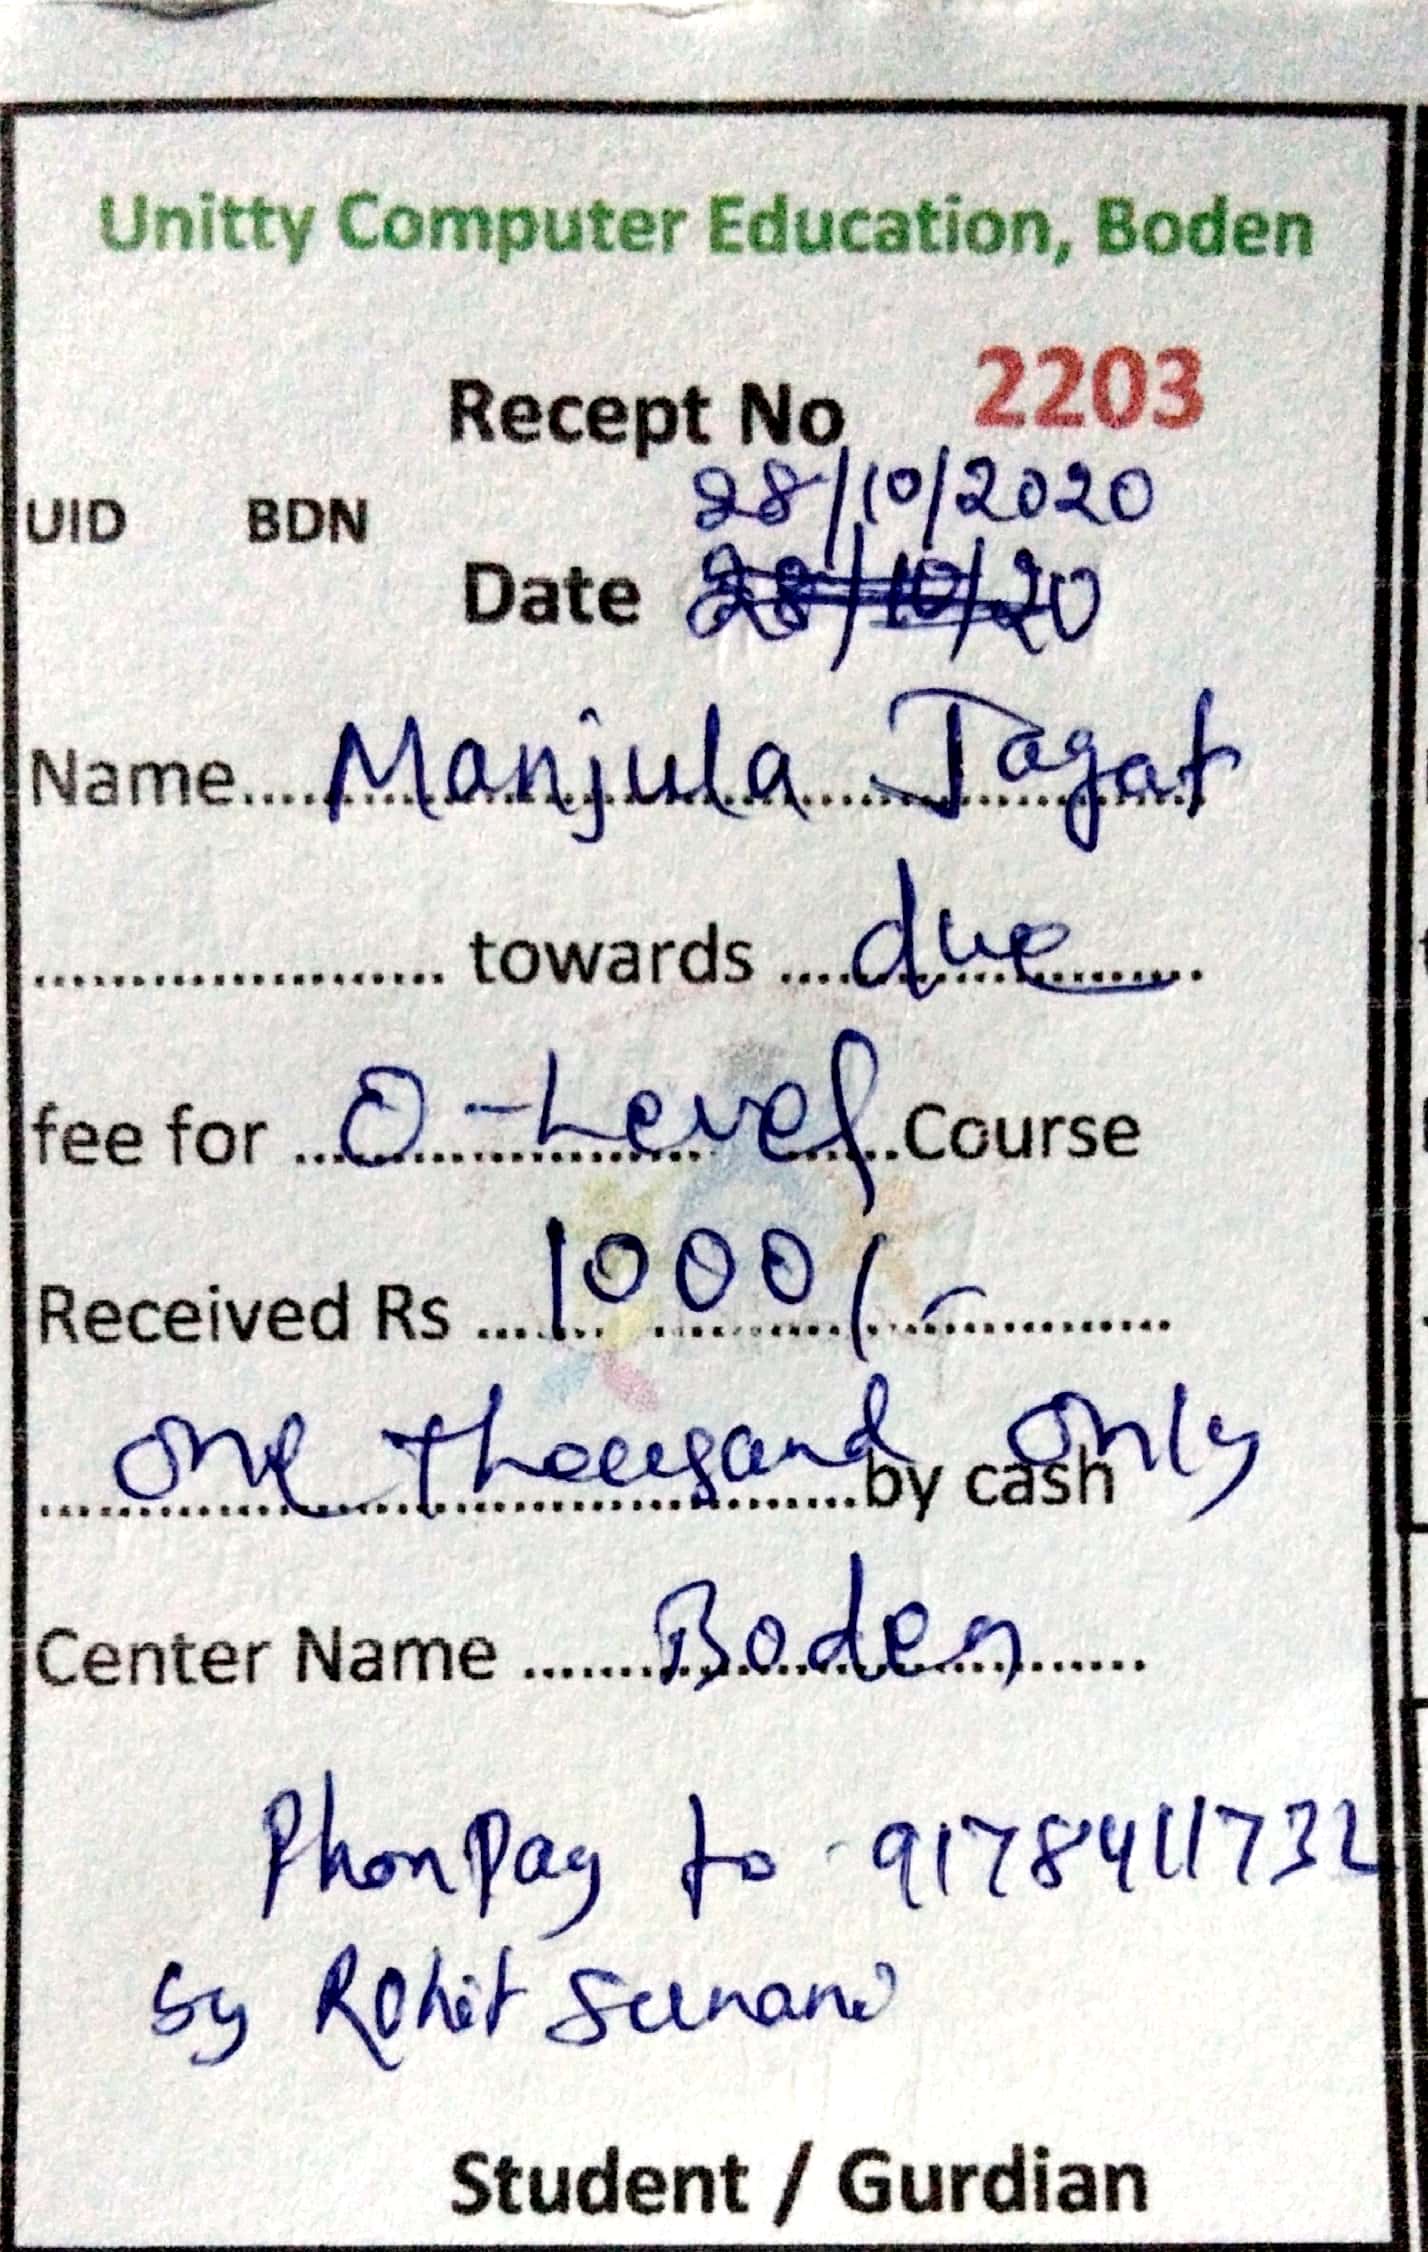 Unitty Computer Education, Boden
Recept No 2203
28/10/2020
UID BDN
Date 28/10/20
Name.... Manjula Jagat
..................... towards .... due
fee for .... O-Level .... Course
Received Rs .... 1000/-
one thousand only
by cash
Center Name ....... Boden
PhonPay to 9178411732
by Rohit Sunani
Student / Gurdian